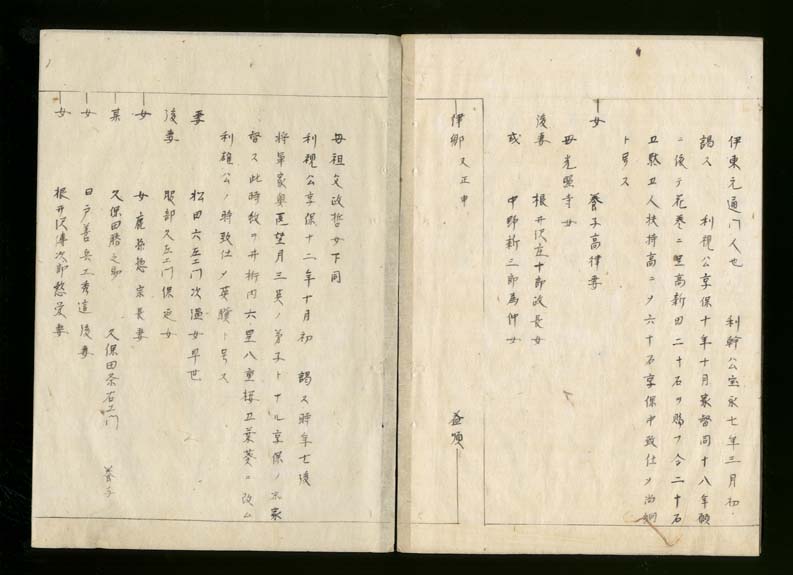 伊東元通門人也　利幹公宝永七年三月初
謁ス　利視公享保十年十月家督同十八年願
ニ依テ花巻ニ野高新田二十石ヲ賜フ合二十石
五駄五人扶持高ニメ六十石享保中致仕メ治
ト号ス
女　養子高律妻
母光照寺女
後妻　根井沢庄十郎政長女
或　中野新三郎為仲女
伊郷　又正申
益
母祖父政哲女下同
利視公享保十二年十月初　謁ス時年七後
将軍家奥医望月三英ノ弟子トナル享保ノ末家
督ス此時紋ヲ井桁内六星八重桜五葉葵ニ改ム
利雄公ノ時致仕メ英
ト号ス
妻　松田六左エ門次女早世
後妻　服部久左エ門保定女
女　鹿
宗長妻
某　久保田勝之助　久保田条右エ門　養子
女　日戸善兵エ秀道後妻
女　根井沢傳次郎愁愛妻